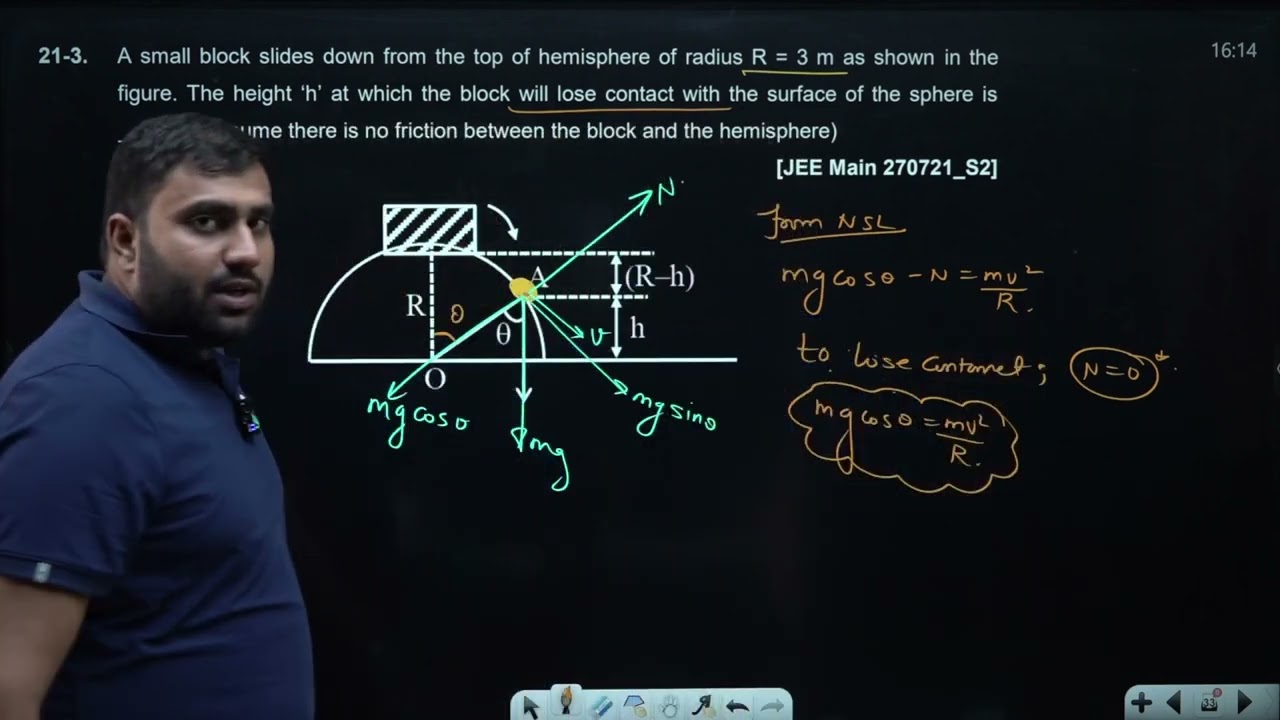 16:14
21-3. A small block slides down from the top of hemisphere of radius R = 3 m as shown in the
figure. The height ‘h’ at which the block will lose contact with the surface of the sphere is
ume there is no friction between the block and the hemisphere)
[JEE Main 270721_S2]
N
A
(R–h)
R
θ
θ
v
h
O
mg cosθ
mg
mg sinθ
form NSL
mg cosθ – N = mv²/R.
to lose
N=0
mg cosθ = mv²/R.
33